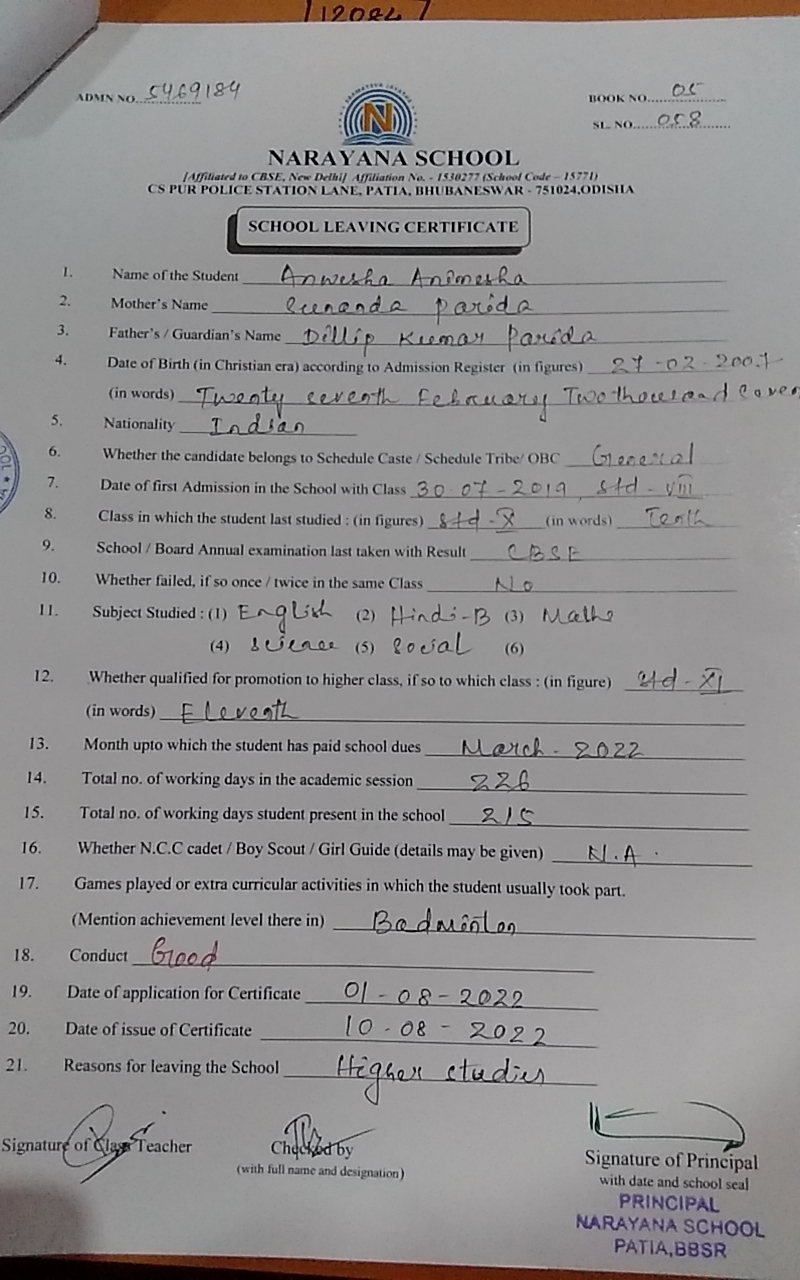 1120247
ADMN NO. 5469184
BOOK NO. 05
SL. NO. 058
N
NARAYANA SCHOOL
[Affiliated to CBSE, New Delhi] Affiliation No. - 1530277 (School Code – 15771)
CS PUR POLICE STATION LANE, PATIA, BHUBANESWAR - 751024,ODISHA
SCHOOL LEAVING CERTIFICATE
1. Name of the Student Anwesha Animesha
2. Mother's Name Sunanda Parida
3. Father's / Guardian's Name Dillip Kumar Parida
4. Date of Birth (in Christian era) according to Admission Register (in figures) 27-02-2007
(in words) Twenty seventh February Two thousand Seven
5. Nationality Indian
6. Whether the candidate belongs to Schedule Caste / Schedule Tribe/ OBC General
7. Date of first Admission in the School with Class 30-07-2019, Std-VIII
8. Class in which the student last studied : (in figures) Std-X (in words) Tenth
9. School / Board Annual examination last taken with Result CBSE
10. Whether failed, if so once / twice in the same Class No
11. Subject Studied : (1) English (2) Hindi-B (3) Maths
(4) Science (5) Social (6)
12. Whether qualified for promotion to higher class, if so to which class : (in figure) Std-XI
(in words) Eleventh
13. Month upto which the student has paid school dues March-2022
14. Total no. of working days in the academic session 226
15. Total no. of working days student present in the school 215
16. Whether N.C.C cadet / Boy Scout / Girl Guide (details may be given) N.A.
17. Games played or extra curricular activities in which the student usually took part.
(Mention achievement level there in) Badminton
18. Conduct Good
19. Date of application for Certificate 01-08-2022
20. Date of issue of Certificate 10-08-2022
21. Reasons for leaving the School Higher studies
Signature of Class Teacher
Checked by
(with full name and designation)
Signature of Principal
with date and school seal
PRINCIPAL
NARAYANA SCHOOL
PATIA,BBSR